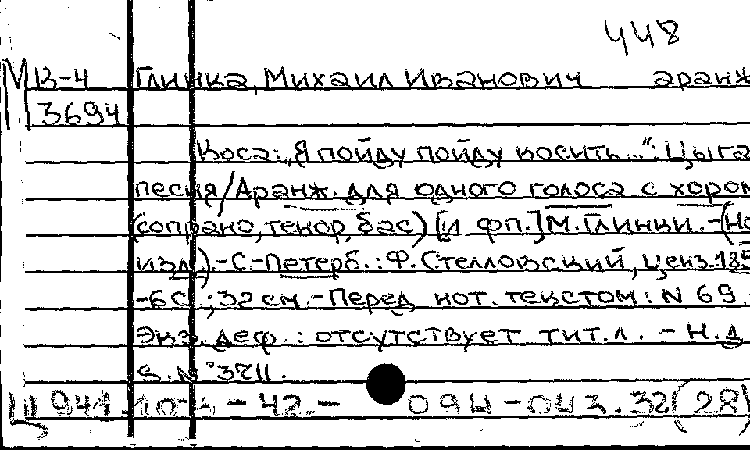 448
М В-4 Глинка, Михаил Иванович аранж
3694
Коса: „Я пойду пойду косить...": Цыга
песня/Аранж. для одного голоса с хором
(сопрано, тенор, бас) [и фп.] М. Глинки. - (Но
изд). - С.-Петерб.: Ф. Стелловский, ценз. 185
- 6 С.; 32 см. - Перед нот. текстом: N 69.
Экз. деф.: отсутствует тит. л. - Н.д
S. N° 3211.
Ц 941. - 42. - 094 - 043.32(28)